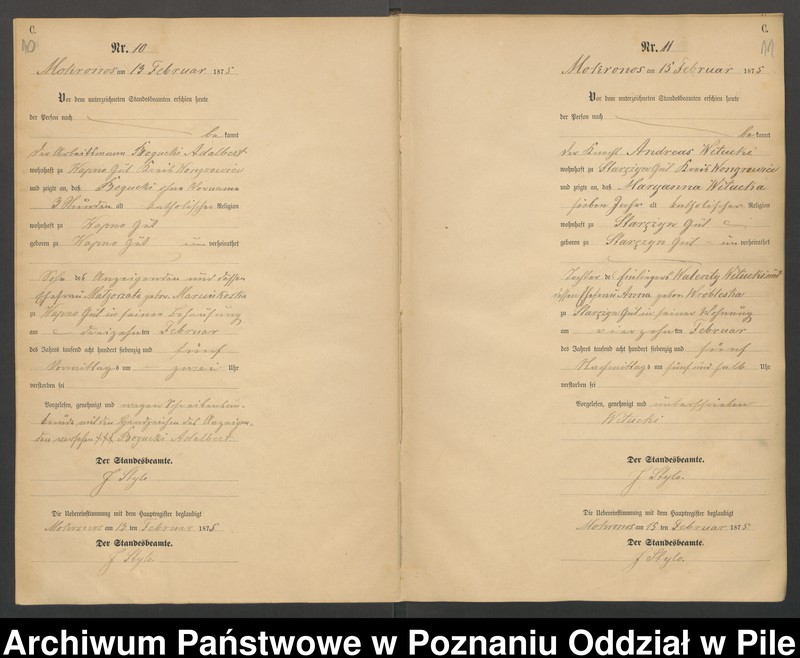 C.
10
Nr. 10
Mokronos am 13 Februar 1875
Vor dem unterzeichneten Standesbeamten erschien heute
der Person nach
be kannt
der Arbeitsmann Bogucki Adelbert
wohnhaft zu Kopno Gut Kreis Wongrowiec
und zeigte an, daß Bogucki ohne Vorname
3 Stunden alt katholischer Religion
wohnhaft zu Kopno Gut
geboren zu Kopno Gut un verheirathet
Sohn des Anzeigenden und dessen
Ehefrau Malgorzata gebor. Marcinkoska
zu Kopno Gut in seiner Behausung
am dreizehn ten Februar
des Jahres tausend acht hundert siebenzig und fünf
Vormittags um zwei Uhr
verstorben sei
Vorgelesen, genehmigt und wegen Schreibenun-
kunde mit den Handzeichen des Anzeigen-
den versehen +++ Bogucki Adelbert
Der Standesbeamte.
J Stylo
Die Uebereinstimmung mit dem Hauptregister beglaubigt
Mokronos am 13 ten Februar 1875
Der Standesbeamte.
J Stylo.
C.
11
Nr. 11
Mokronos am 15 Februar 1875
Vor dem unterzeichneten Standesbeamten erschien heute
der Person nach
be kannt
der Knecht Andreas Witucki
wohnhaft zu Starczyn Gut Kreis Wongrowiec
und zeigte an, daß Maryanna Witucka
sieben Jahr alt katholischer Religion
wohnhaft zu Starczyn Gut
geboren zu Starczyn Gut un verheirathet
Tochter des Einliegers Walenty Witucki und
dessen Ehefrau Anna gebor. Wrobleska
zu Starczyn Gut in seiner Wohnung
am vierzehn ten Februar
des Jahres tausend acht hundert siebenzig und fünf
Nachmittags um fünf und halb Uhr
verstorben sei
Vorgelesen, genehmigt und unterschrieben
Witucki
Der Standesbeamte.
J Stylo.
Die Uebereinstimmung mit dem Hauptregister beglaubigt
Mokronos am 15 ten Februar 1875
Der Standesbeamte.
J Stylo.
Archiwum Państwowe w Poznaniu Oddział w Pile